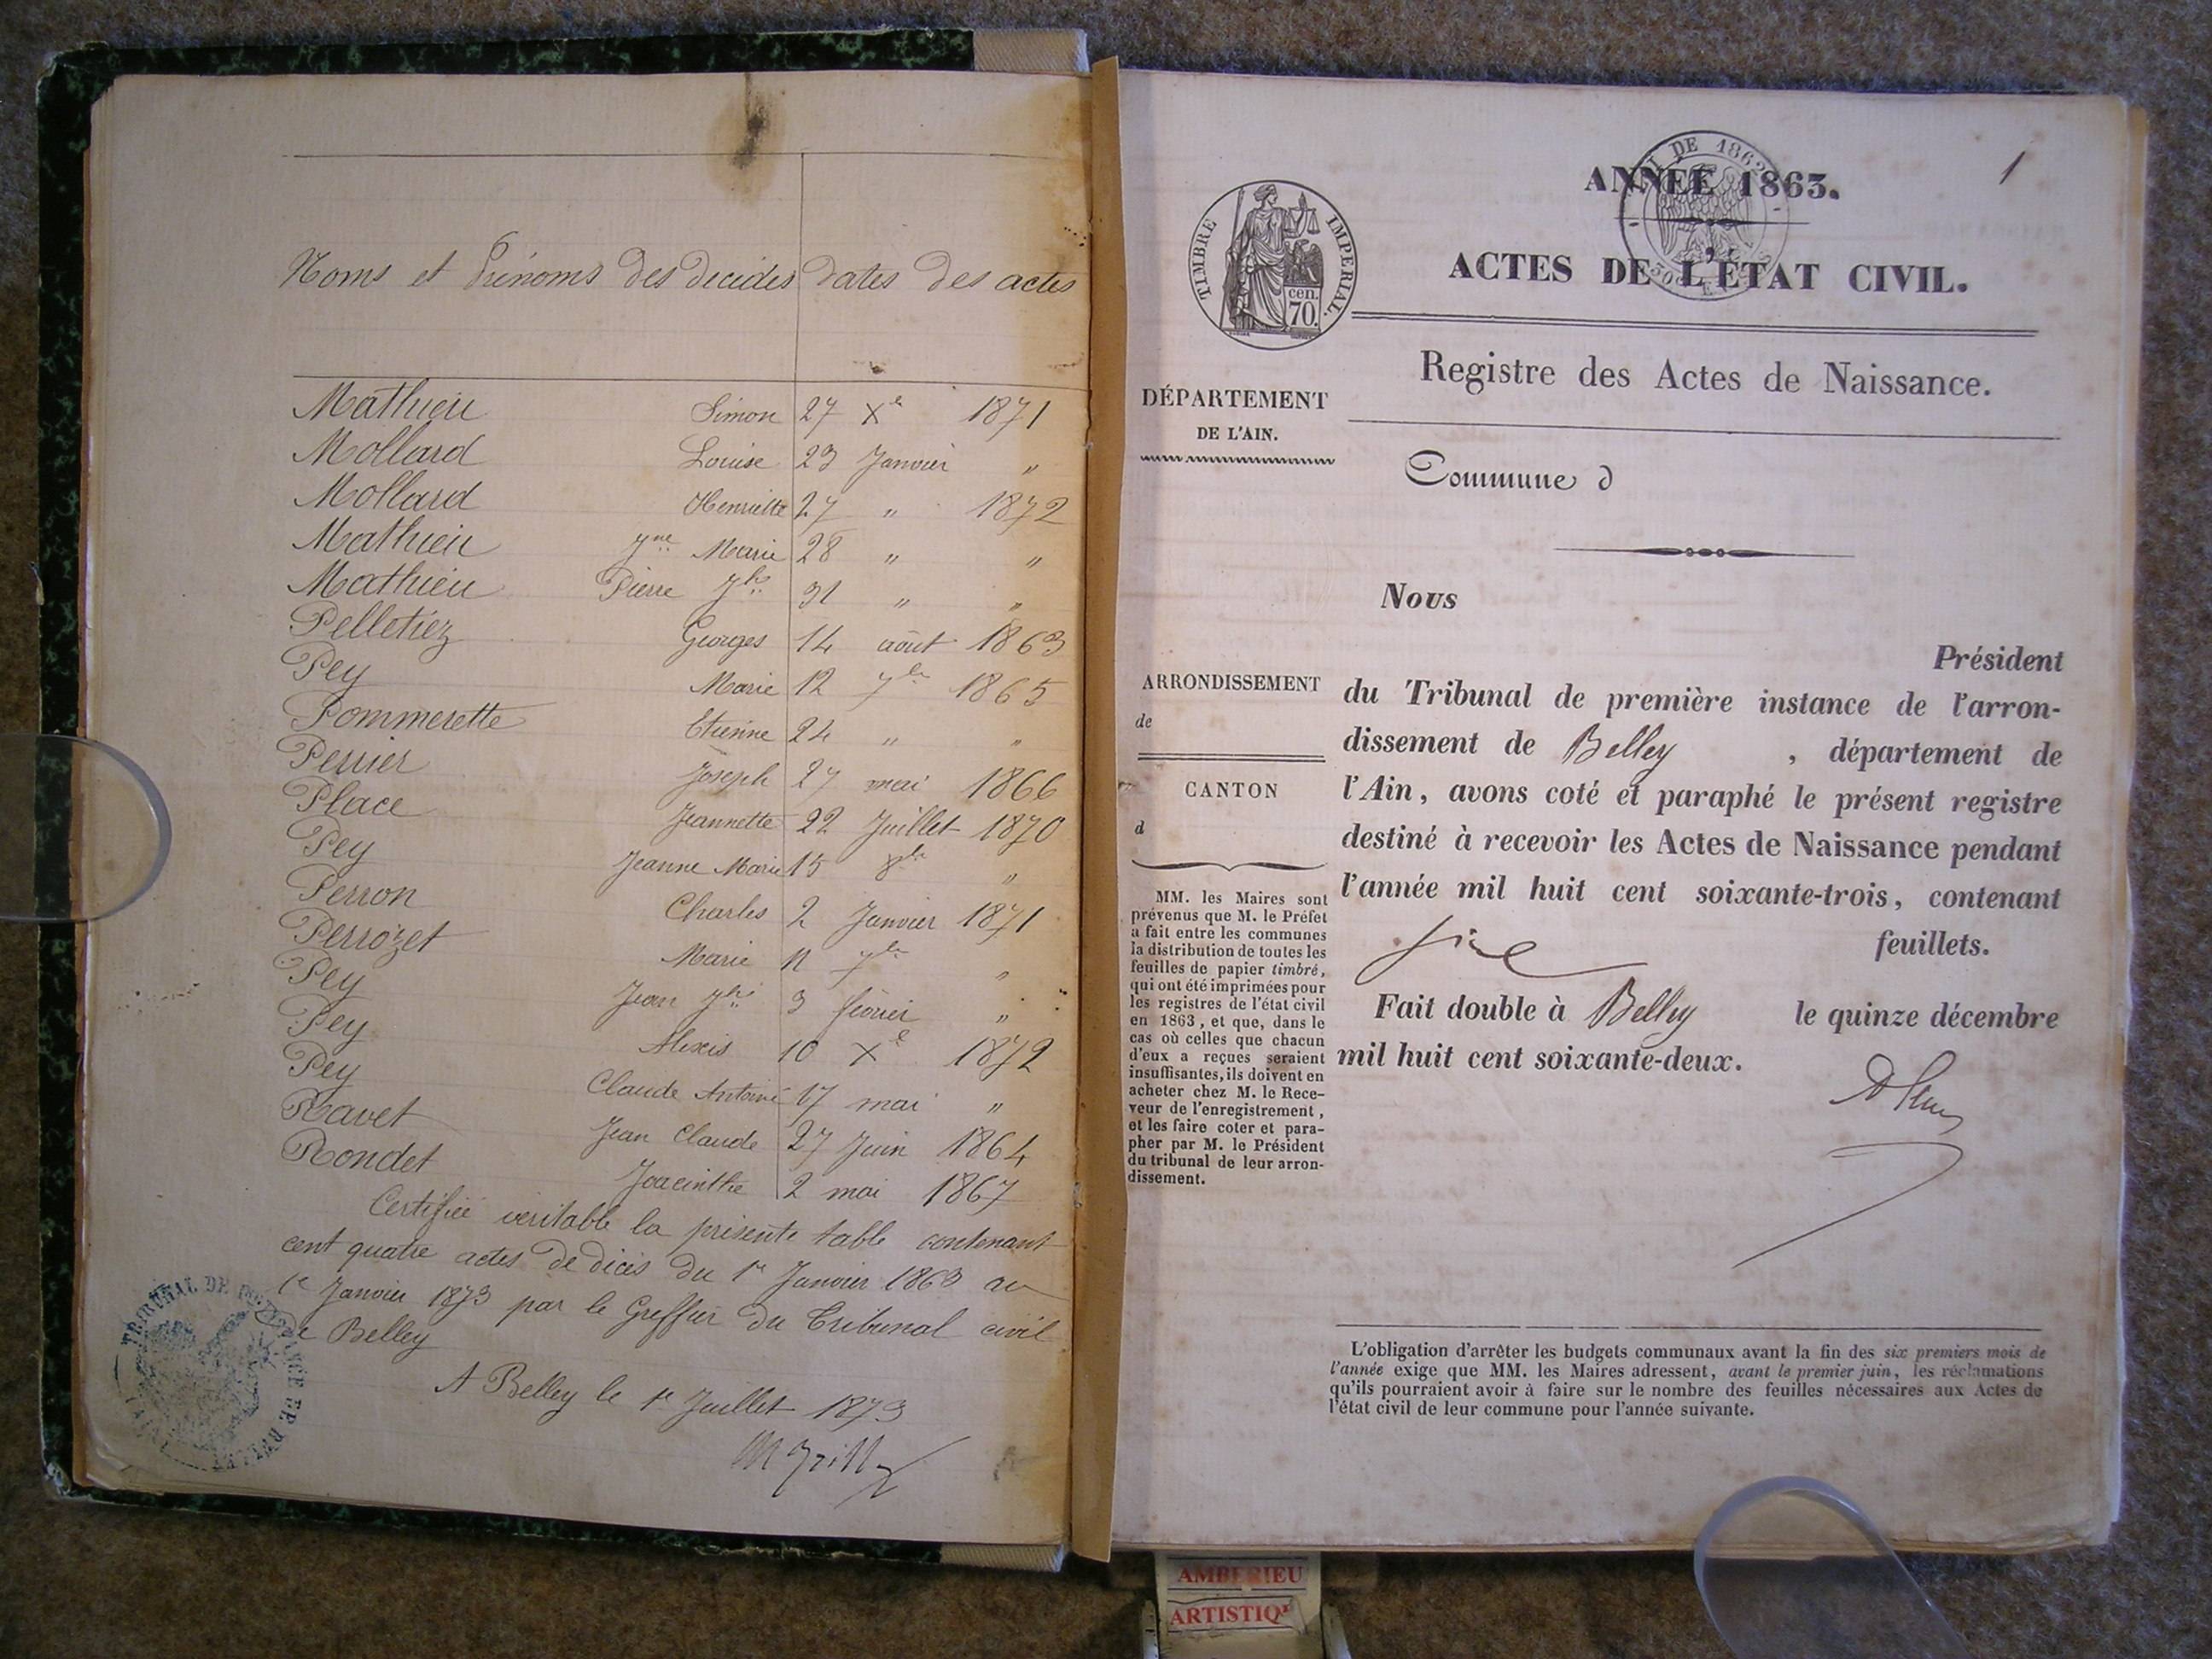 Noms et Prénoms des décédés dates des actes
Mathieu Simon 27 Xe 1871
Mollard Louise 23 Janvier "
Mollard Henriette 27 " 1872
Mathieu Marie 28 " "
Mathieu Pierre Jh 31 " "
Pelletiez Georges 14 août 1863
Pey Marie 12 7bre 1865
Pommerette Etienne 24 " "
Perrier Joseph 27 mai 1866
Place Jeannette 22 Juillet 1870
Pey Jeanne Marie 15 8bre "
Perron Charles 2 Janvier 1871
Perrozet Marie 11 7bre "
Pey Jean Jh 3 février "
Pey Alexis 10 Xe 1872
Pey Claude Antoine 17 mai "
Ravet Jean Claude 27 Juin 1864
Rondet Joacinthe 2 mai 1867
Certifiée veritable la présente table contenant
cent quatre actes de décès du 1er Janvier 1863 au
1er Janvier 1873 par le Greffier du Tribunal civil
de Belley
A Belley le 1er Juillet 1873
TRIBUNAL DE
1
ANNÉE 1863.
TIMBRE IMPERIAL.
cen.
70.
ACTES DE L'ÉTAT CIVIL.
Registre des Actes de Naissance.
DÉPARTEMENT
DE L'AIN.
Commune d
Nous
Président
ARRONDISSEMENT
de
CANTON
d
du Tribunal de première instance de l'arron-
dissement de Belley , département de
l'Ain, avons coté et paraphé le présent registre
destiné à recevoir les Actes de Naissance pendant
l'année mil huit cent soixante-trois, contenant
feuillets.
Fait double à Belley le quinze décembre
mil huit cent soixante-deux.
MM. les Maires sont
prévenus que M. le Préfet
a fait entre les communes
la distribution de toutes les
feuilles de papier timbré,
qui ont été imprimées pour
les registres de l'état civil
en 1863, et que, dans le
cas où celles que chacun
d'eux a reçues seraient
insuffisantes, ils doivent en
acheter chez M. le Rece-
veur de l'enregistrement,
et les faire coter et para-
pher par M. le Président
du tribunal de leur arron-
dissement.
L'obligation d'arrêter les budgets communaux avant la fin des six premiers mois de
l'année exige que MM. les Maires adressent, avant le premier juin, les réclamations
qu'ils pourraient avoir à faire sur le nombre des feuilles nécessaires aux Actes de
l'état civil de leur commune pour l'année suivante.
AMBERIEU